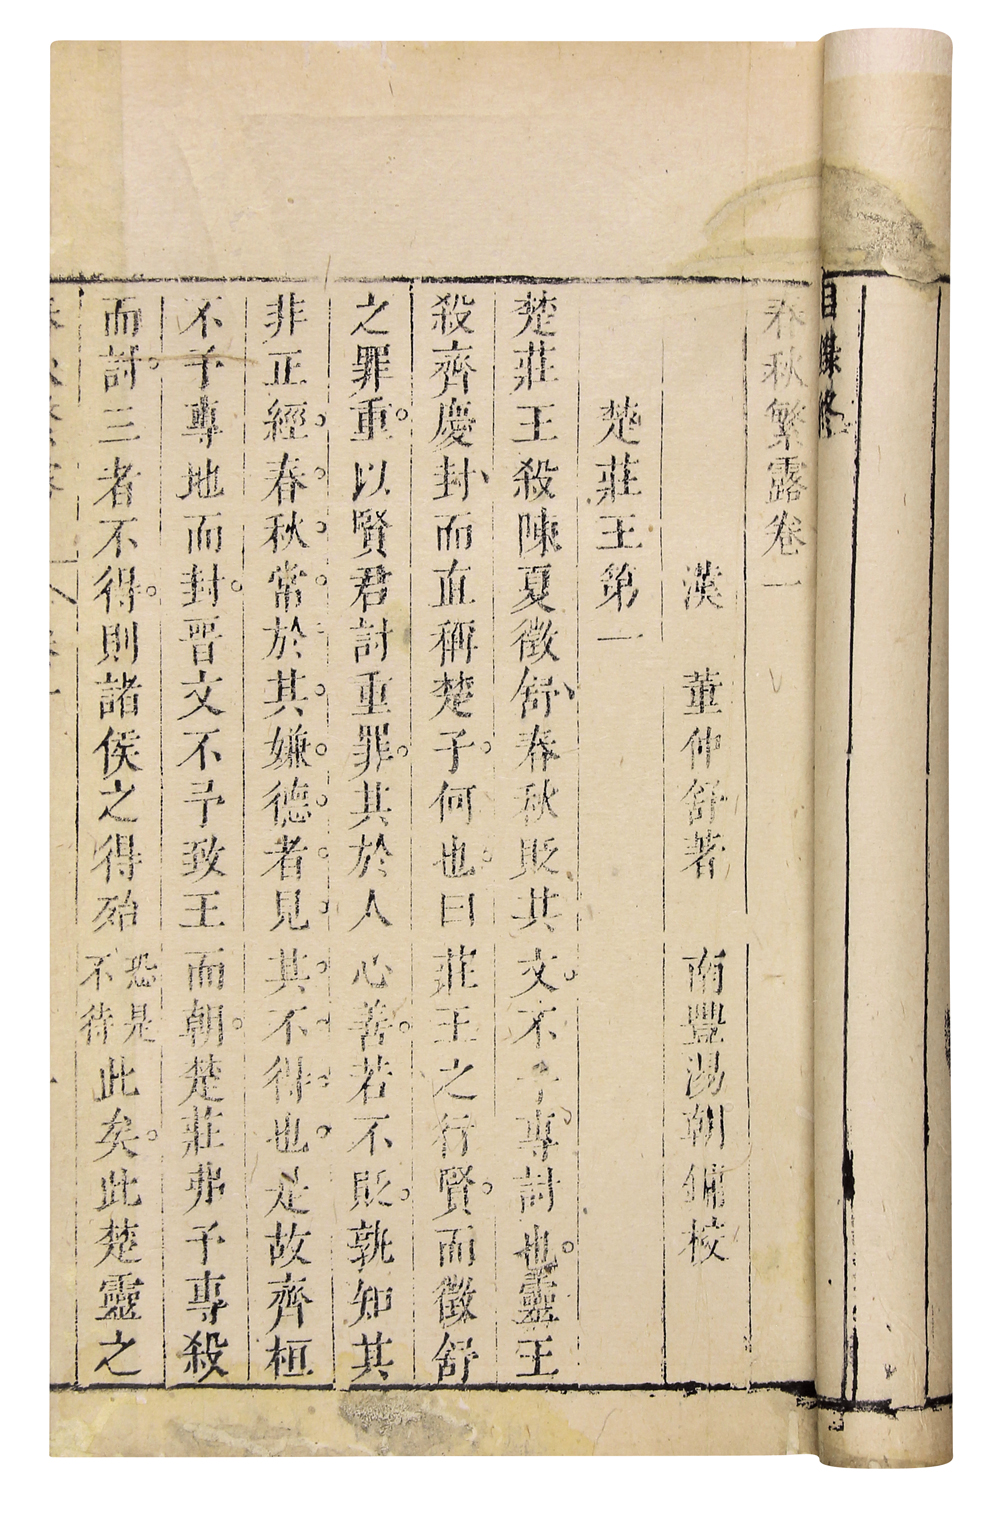 春秋繁露卷一
漢 董仲舒著 南豐湯朝鏞校
楚莊王第一
楚莊王殺陳夏徵舒春秋貶其文不予專討也靈王
殺齊慶封而直稱楚子何也曰莊王之行賢而徵舒
之罪重以賢君討重罪其於人心善若不貶孰知其
非正經春秋常於其嫌德者見其不得也是故齊桓
不予專地而封晋文不予致王而朝楚莊弗予專殺
而討三者不得則諸侯之得殆恐是不待此矣此楚靈之